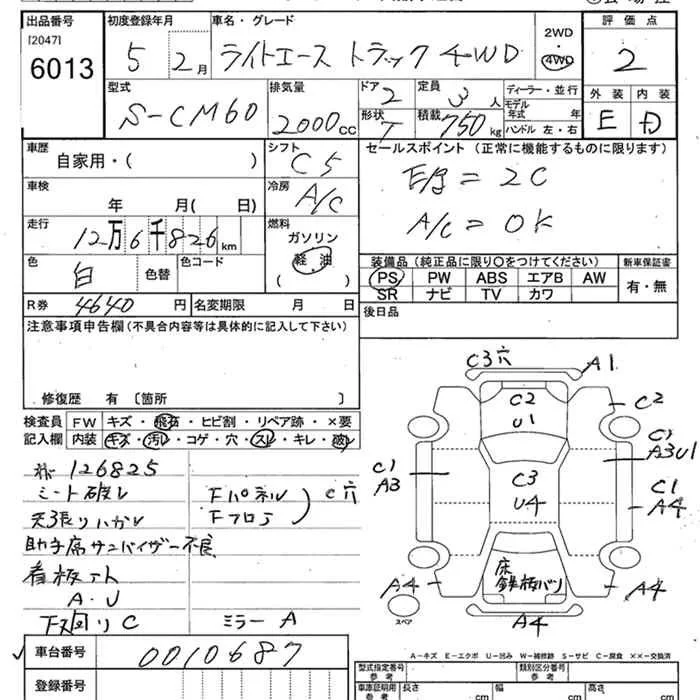 出品番号 初度登録年月 車名・グレード 2WD 評価点
[2047] 6013 5 2月 ライトエース トラック 4WD 4WD 2
型式 排気量 ドア 定員 ディーラー・並行 外装 内装
S-CM60 2000cc 2 3人 モデル年式 年 E D
形状 T 積載 750kg ハンドル 左・右
車歴 シフト セールスポイント (正常に機能するものに限ります)
自家用・( ) C5 E/g = 2C
車検 冷房
年 月( 日) A/C A/C = OK
走行 燃料
12万6千826km ガソリン
色 色替 色コード 軽油 装備品 (純正品に限り○をつけてください) 新車保証書
白 ( ) PS PW ABS エアB AW 有・無
SR ナビ TV カワ
R券 4640円 名変期限 月 日 後日品
注意事項申告欄 (不具合内容等は具体的に記入して下さい)
修復歴 有 [箇所 ]
検査員 FW キズ・飛石・ヒビ割・リペア跡・×要
記入欄 内装 キズ・汚レ・コゲ・穴・スレ・キレ・破レ
126825
シート破レ Fパネル
天張りハガレ Fフロア C穴
助手席サンバイザー不良
看板アト
A・U
下廻りC ミラーA
C3穴 A1
C2 U1 C2
C1 A3 C1 A3U1
C3 U4 C1 A4
床 鉄板バリ
A4 A4
スペア A4
A-キズ E-エクボ U-凹み W-補修跡 S-サビ C-腐食 ××-交換済
車台番号 0010687 型式指定番号 参考 類別区分番号 参考
登録番号 車庫証明用 参考 長さ cm 幅 cm 高さ cm